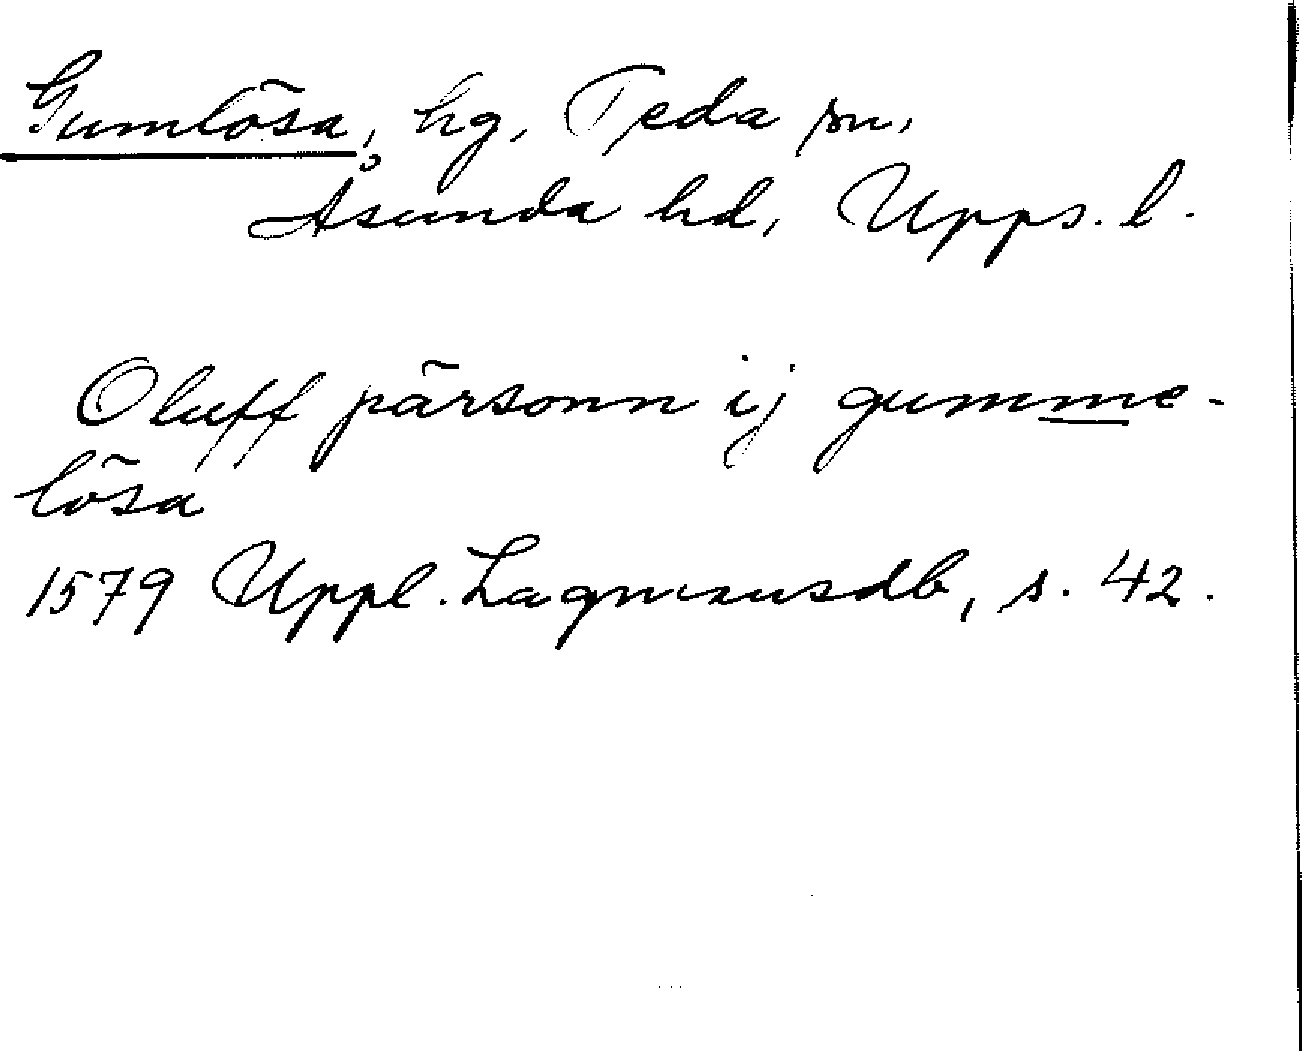 Gumlösa, hg, Teda sn,
Åsunda hd, Upps. l.
Oluff pärsonn ij gumme-
lösa
1579 Uppl. Lagmansdb, s. 42.